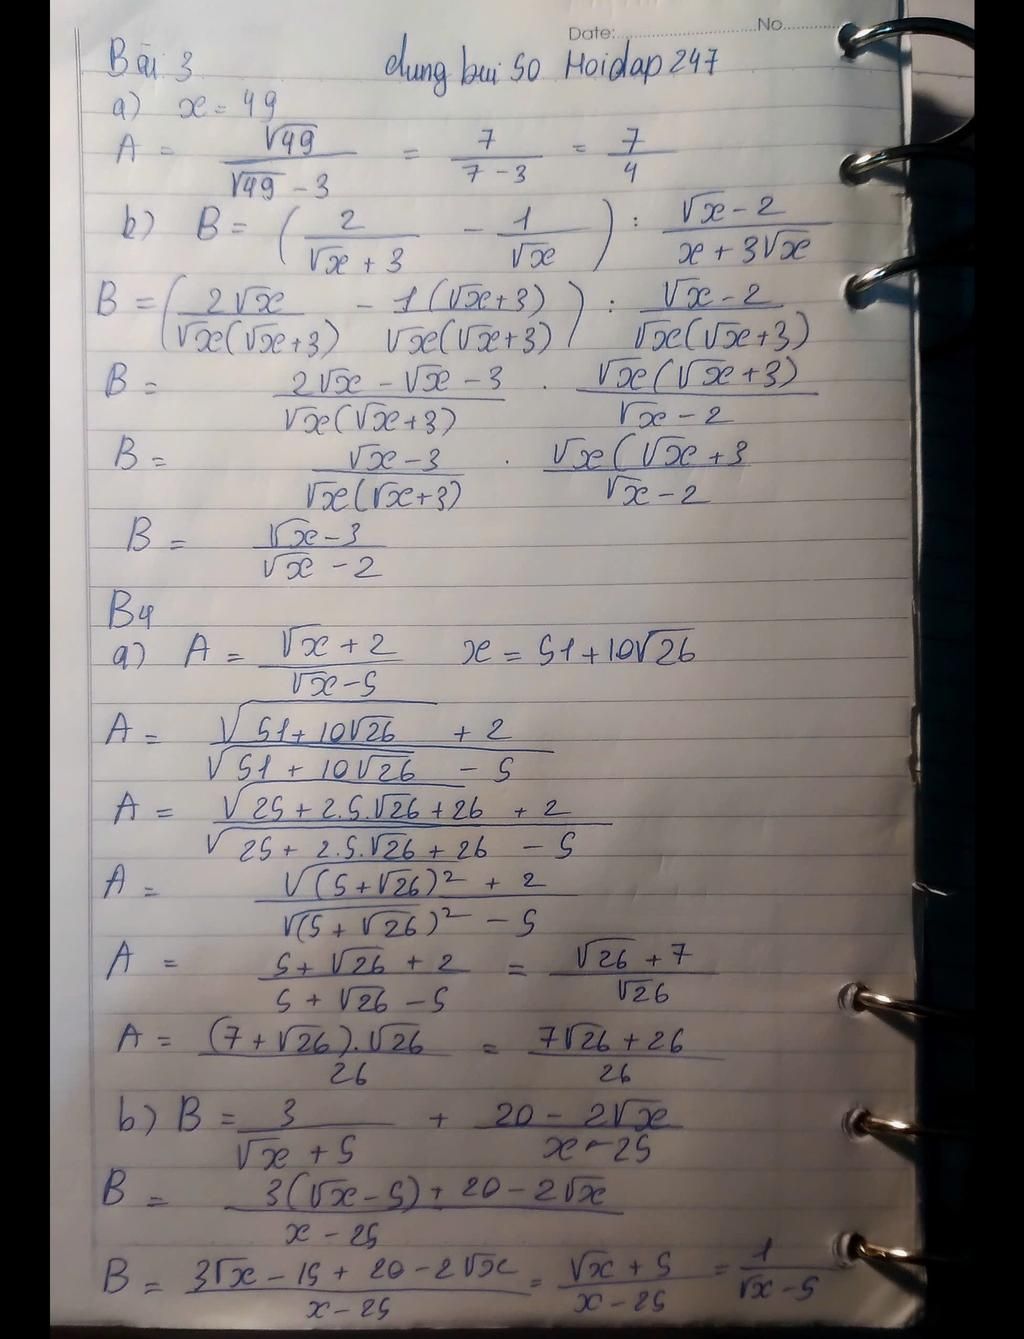 Date:.............................No..............
Bài 3 dungbui50 Hoidap247
a) x = 49
A = √49 / (√49 - 3) = 7 / (7 - 3) = 7/4
b) B = (2 / (√x + 3) - 1 / √x) : (√x - 2) / (x + 3√x)
B = (2√x / (√x(√x+3)) - 1(√x+3) / (√x(√x+3))) : (√x - 2) / (√x(√x+3))
B = (2√x - √x - 3) / (√x(√x+3)) . √x(√x+3) / (√x - 2)
B = (√x - 3) / (√x(√x+3)) . √x(√x + 3 / (√x - 2)
B = (√x - 3) / (√x - 2)
B4
a) A = (√x + 2) / (√x - 5) x = 51 + 10√26
A = (√(51 + 10√26) + 2) / (√(51 + 10√26) - 5)
A = (√(25 + 2.5.√26 + 26) + 2) / (√(25 + 2.5.√26 + 26) - 5)
A = (√(5 + √26)² + 2) / (√(5 + √26)² - 5)
A = (5 + √26 + 2) / (5 + √26 - 5) = (√26 + 7) / √26
A = (7 + √26).√26 / 26 = (7√26 + 26) / 26
b) B = 3 / (√x + 5) + (20 - 2√x) / (x - 25)
B = (3(√x - 5) + 20 - 2√x) / (x - 25)
B = (3√x - 15 + 20 - 2√x) / (x - 25) = (√x + 5) / (x - 25) = 1 / (√x - 5)